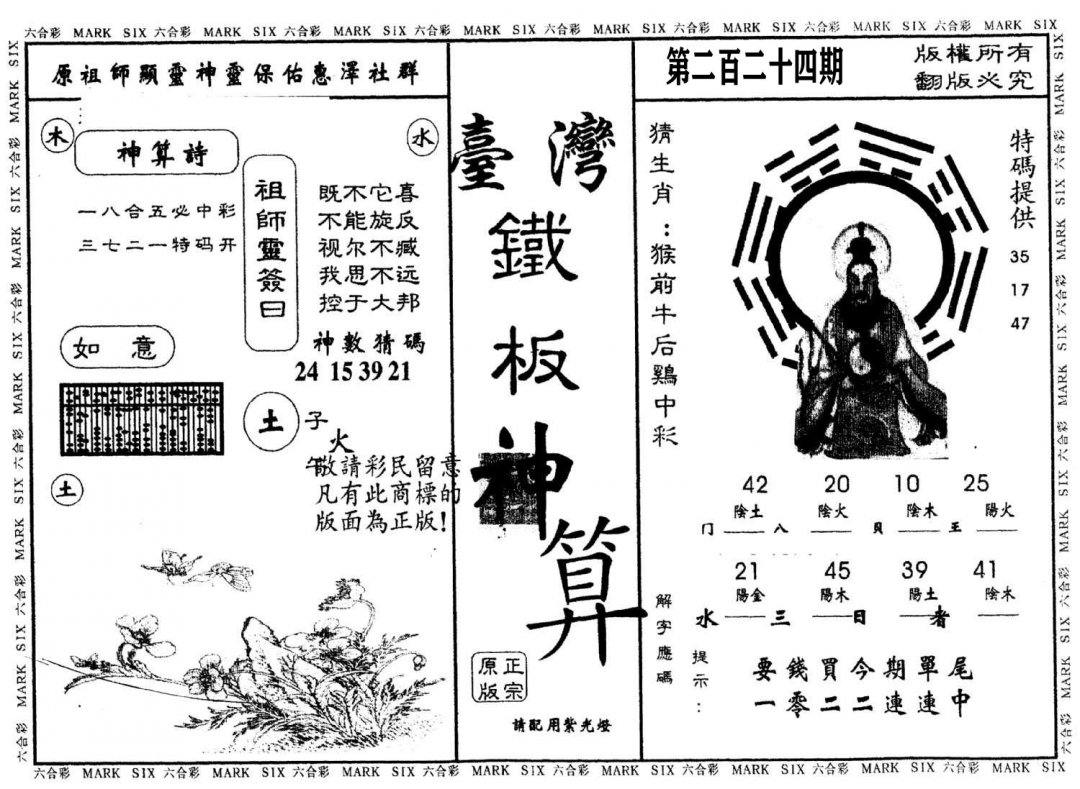 六合彩 MARK SIX 六合彩 MARK SIX 六合彩 MARK SIX 六合彩 MARK SIX 六合彩 MARK SIX 六合彩 MARK SIX 六合彩 MARK SIX 六合彩 MARK SIX
原祖師顯靈神靈保佑惠澤社群
木
神算詩
水
一八合五必中彩
三七二一特码开
祖師靈簽曰
既不它喜
不能旋反
视尔不臧
我思不远
控于大邦
神數猜碼
24 15 39 21
如意
土
子
火
午
敬請彩民留意
凡有此商標的
版面為正版!
土
臺灣
鐵
板
神
算
正宗
原版
請配用紫光燈
第二百二十四期
版權所有
翻版必究
猜生肖:猴前牛后鷄中彩
特碼提供
35
17
47
42 20 10 25
陰土 陰火 陰木 陽火
门 八 貝 王
21 45 39 41
陽金 陽木 陽土 陰木
水 三 日 者
解字應碼
提示:
要錢買今期單尾
一零二二連連中
六合彩 MARK SIX 六合彩 MARK SIX 六合彩 MARK SIX 六合彩 MARK SIX 六合彩 MARK SIX 六合彩 MARK SIX 六合彩 MARK SIX 六合彩 MARK SIX